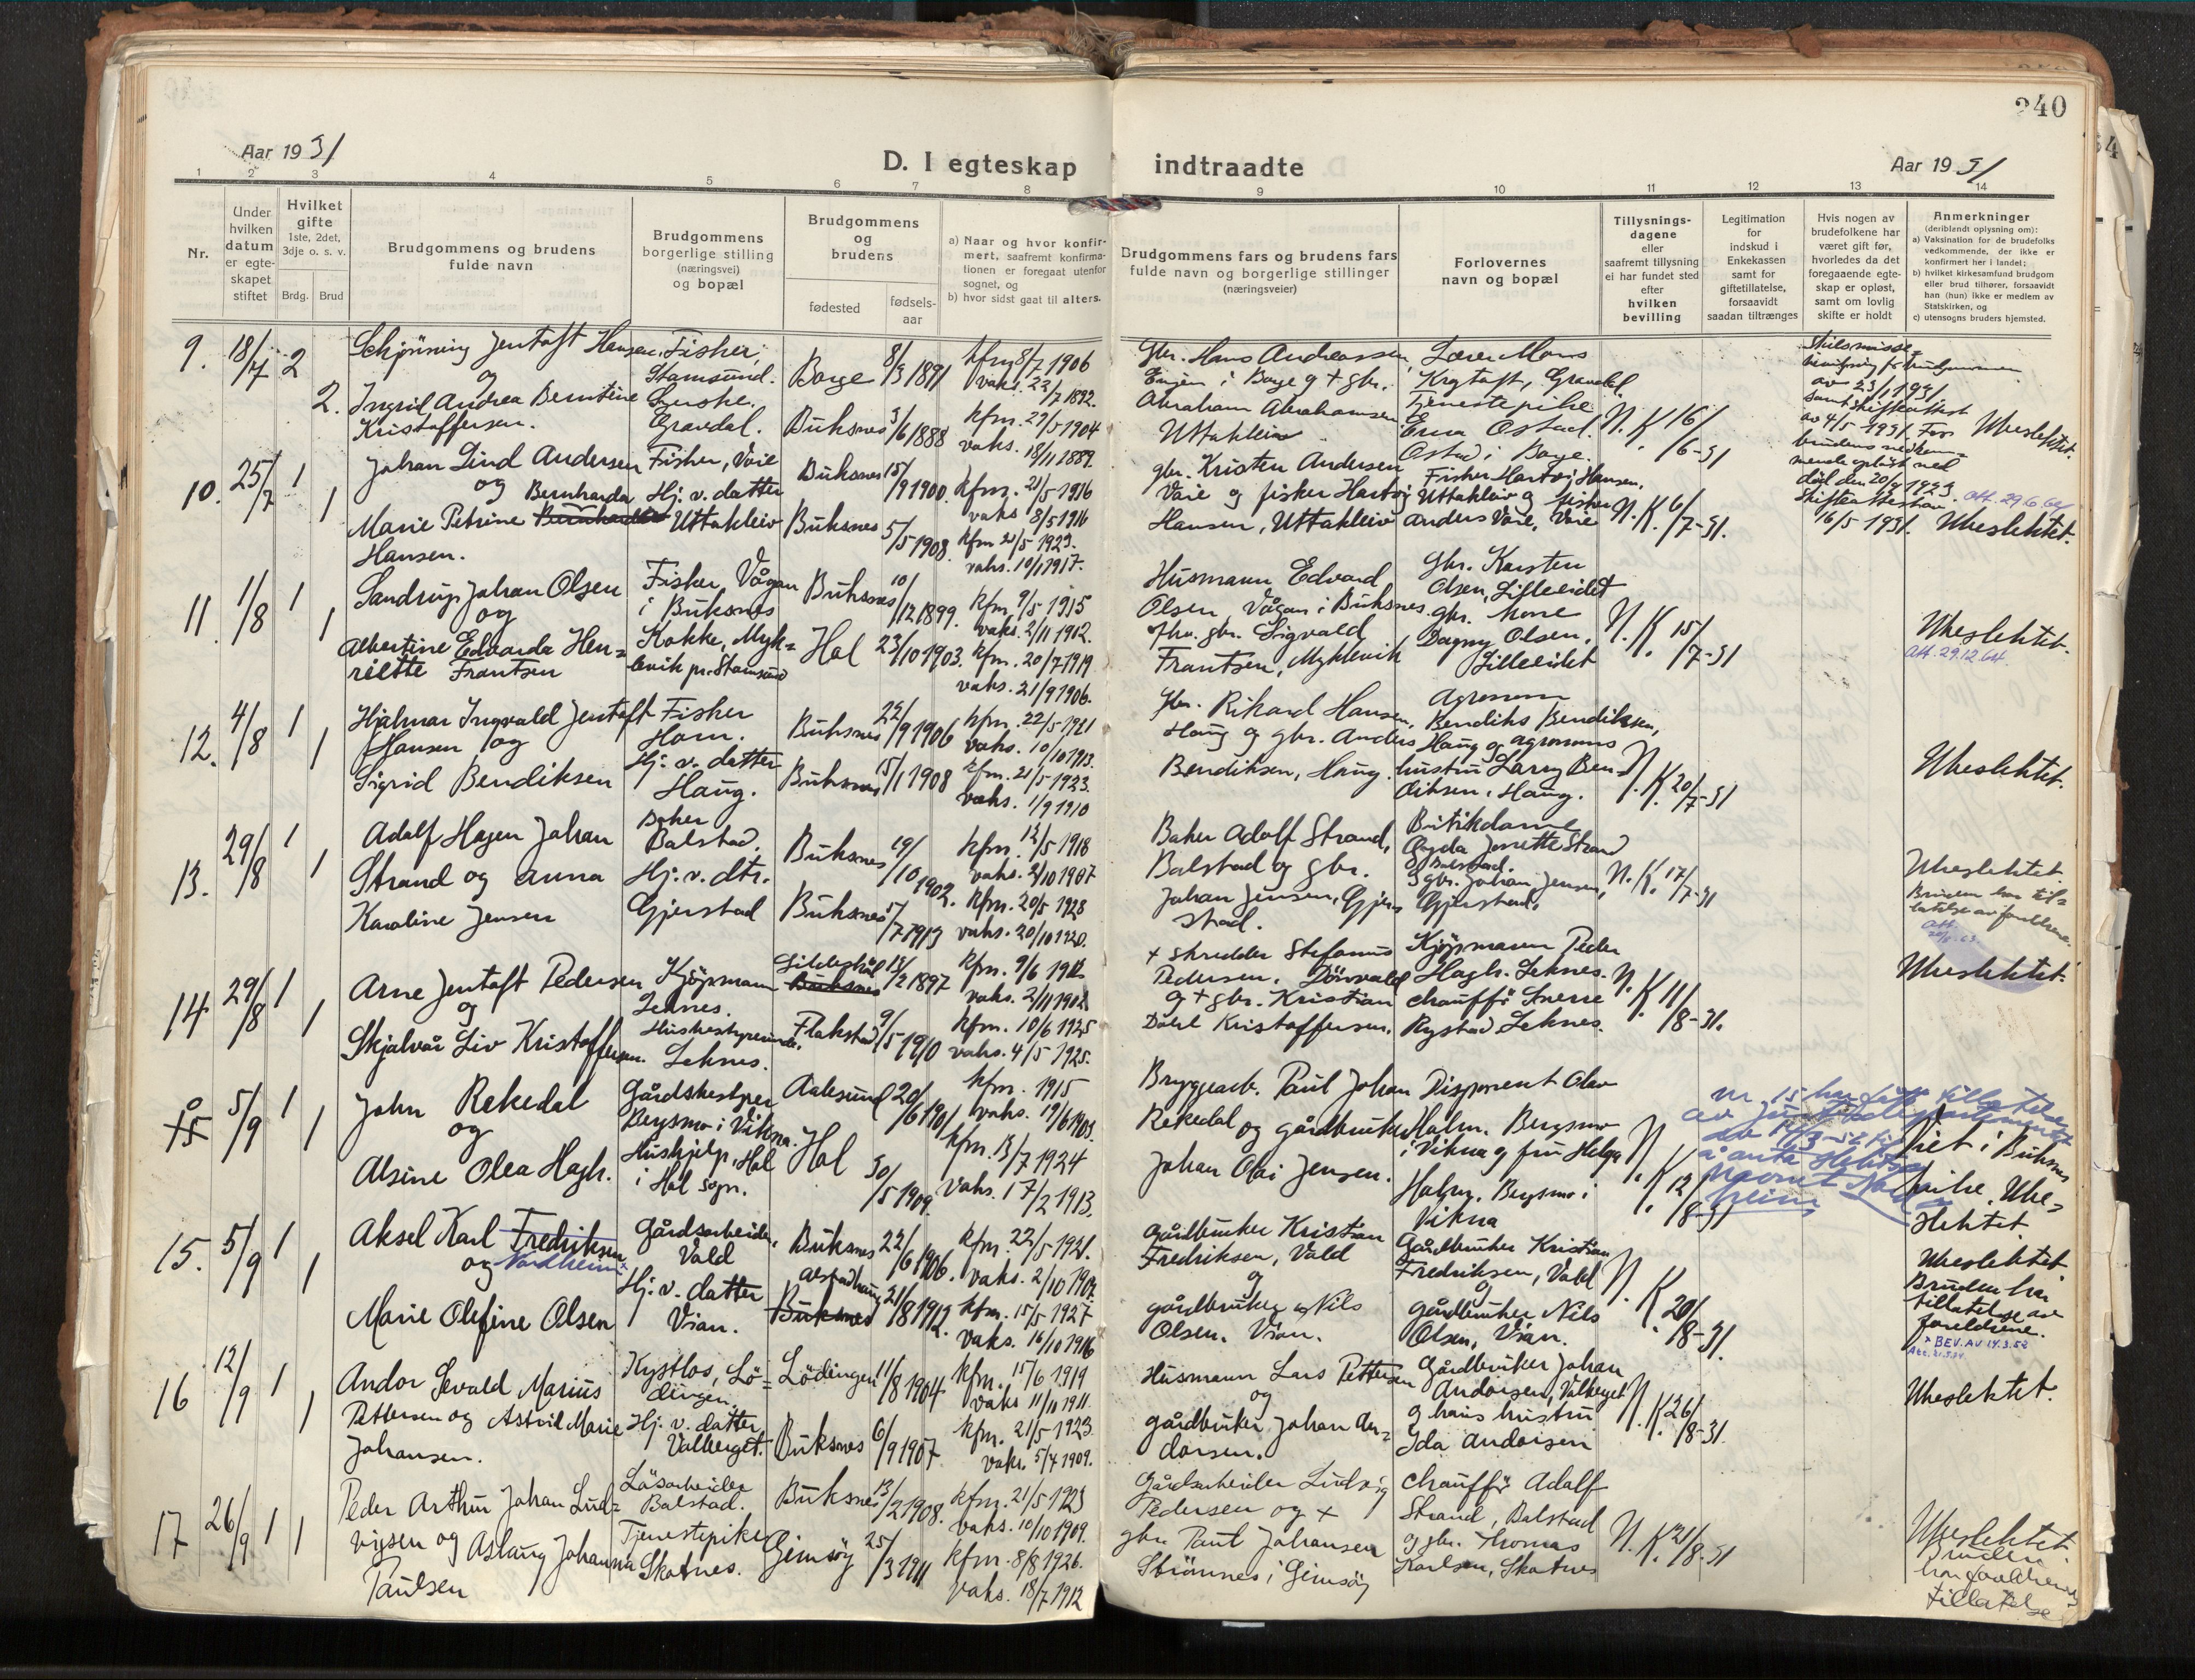 240
Aar 1931
D. I egteskap indtraadte
Aar 1931
1 2 3 4 5 6 7 8 9 10 11 12 13 14
Nr.
Under hvilken datum er egte-skapet stiftet
Hvilket gifte
1ste, 2det, 3dje o. s. v.
Brdg. Brud
Brudgommens og brudens fulde navn
Brudgommens borgerlige stilling (næringsvei) og bopæl
Brudgommens og brudens
fødested
fødsels-aar
a) Naar og hvor konfir-
mert, saafremt konfirma-
tionen er foregaat utenfor
sognet, og
b) hvor sidst gaat til alters.
Brudgommens fars og brudens fars
fulde navn og borgerlige stillinger
(næringsveier)
Forlovernes
navn og bopæl
Tillysnings-
dagene
eller
saafremt tillysning
ei har fundet sted
efter
hvilken
bevilling
Legitimation
for
indskud i
Enkekassen
samt for
giftetillatelse,
forsaavidt
saadan tiltrænges
Hvis nogen av
brudefolkene har
været gift før,
hvorledes da det
foregaaende egte-
skap er opløst,
samt om lovlig
skifte er holdt
Anmerkninger
(deriblandt oplysning om):
a) Vaksination for de brudefolks
vedkommende, der ikke er
konfirmert her i landet;
b) hvilket kirkesamfund brudgom
eller brud tilhører, forsaavidt
han (hun) ikke er medlem av
Statskirken, og
c) utensogns bruders hjemsted.
9. 18/7 2 2.
Schjønning Jentoft Hansen
og
Ingrid Andrea Berntine
Kristoffersen.
Fisher,
Stamsund.
Gravdal.
Borge 8/3 1891
Buksnes 3/6 1888
kfm. 8/7 1906
vaks. 22/7 1892.
kfm. 29/5 1904
vaks. 18/11 1889.
Gbr. Hans Andreassen
Engen i Borge og + gbr.
Abraham Abrahamsen
Uttakleiv
Lærer Mons
Krogtoft, Gravdal.
Tjenestepike
Erna Ostad.
Ostad i Borge.
N. K. 16/6-31
av 23/1 1931
samt skifteattest
av 4/5 1931. For
brudens vedkom-
mende opløst ved
død den 20/9 1923.
16/5 1931.
Ubeslektet.
10. 25/7 1 1
Johan Lind Andersen
og Bernharda
Marie Petrine
Hansen.
Fisher, Voie
Hj. v. datter
Uttakleiv
Buksnes 15/9 1900.
Buksnes 5/5 1908.
kfm. 21/5 1916
vaks 8/5 1916
kfm 21/5 1923.
vaks. 10/1 1917.
gbr. Kristen Andersen
Voie og fisker Hartvig
Hansen, Uttakleiv
Fisher Hartvig Hansen,
Uttakleiv og fisker
Anders Voie, Voie
N. K. 6/7-31.
Att. 29.6.64
Ubeslektet.
11. 1/8 1 1
Sandrup Johan Olsen
og
Albertine Edvarda Hen=
riette Frantsen
Fisker, Vågan
i Buksnes
Kokke, Myk=
levik pr. Stamsund
Buksnes 10/12 1899.
Hol 23/10 1903.
kfm. 9/5 1915
vaks. 2/11 1902.
kfm. 20/7 1919
vaks. 21/9 1906.
Husmann Edvard
Olsen, Vågan i Buksnes.
fhv. gbr. Sigvald
Frantsen, Myklevik
Gbr. Karsten
Olsen, Lilleeidet
gbr. kone
Dagny Olsen,
Lilleeidet
N. K. 15/7-31
Ubeslektet.
Att. 29.12.64.
12. 4/8 1 1
Hjalmar Ingvald Jentoft
Hansen og
Sigrid Bendiksen
Fisher
Horn.
Hj. v. datter
Haug.
Buksnes 22/9 1906
Buksnes 15/1 1908
kfm. 22/5 1921
vaks. 10/10 1913.
kfm. 21/5 1923.
vaks. 1/9 1910
Gbr. Rikard Hansen,
Haug og gbr. Anders
Bendiksen, Haug.
Agronom
Bendiks Bendiksen,
Haug og agronoms
hustru Larry Ben=
diksen, Haug.
N. K. 20/7-31
Ubeslektet.
13. 29/8 1 1
Adolf Hagen Johan
Strand og Anna
Karoline Jensen
Baker
Balstad.
Hj. v. dtr.
Gjerstad
Buksnes 19/10 1902.
Buksnes 5/7 1913
kfm. 12/5 1918
vaks. 2/10 1907
kfm. 20/5 1928
vaks. 20/10 1920.
Baker Adolf Strand,
Balstad og gbr.
Johan Jensen, Gjer=
stad.
Butikdame
Gyda Jonette Strand
Balstad.
og gbr. Johan Jensen,
Gjerstad.
N. K. 17/7-31
Ubeslektet.
Bruden har til=
latelse av foreldrene.
14 29/8 1 1
Arne Jentoft Pedersen
og
Skjalvår Liv Kristoffersen.
Kjøpmann
Leknes.
Husbestyrerinde.
Leknes.
Buksnes 13/2 1897
Flakstad 9/5 1910
kfm. 9/6 1912
vaks. 2/11 1902.
kfm. 10/6 1925
vaks. 4/5 1925.
+ skredder Stefanus
Pedersen,
og + gbr. Kristian
Dahl Kristoffersen.
Kjøpmann Peder
Hagh. Leknes.
chauffør Sverre
Rystad Leknes.
N. K. 11/8-31.
Ubeslektet.
5/9 1 1
John Rekedal
og
Alsine Olea Hagh.
Gårdsbestyrer
Bergsmo i Vikna.
Hushjelp, Hol
i Hol sogn.
Aalesund 20/6 1901
Hol 30/5 1909.
kfm. 1915
vaks. 19/6 1903.
kfm. 13/7 1924
vaks. 17/2 1913.
Bryggearb. Paul Johan
Rekedal og gårdbruker
Johan Olai Jensen.
Disponent Olav
Holm. Bergsmo
i Vikna og fru Helga
Holm. Bergsmo i
Vikna
N. K. 12/8-31
nr. 15 har fått tillatelse
av Justisdepartementet
å anta slekts-
navnet Nord
heim
Viet i Buksnes
kirke. Ube=
slektet.
15. 5/9 1 1
Aksel Karl Fredriksen
og Nordheim
Marie Olefine Olsen
Gårdsarbeider,
Vold
Hj. v. datter
Vian.
Buksnes 22/6 1906.
Alstadhaug
Buksnes 21/8 1912.
kfm. 22/5 1921.
vaks. 2/10 1907.
kfm. 15/5 1927
vaks. 16/10 1916
Gårdbruker Kristian
Fredriksen, Vold
og
gårdbruker Nils
Olsen. Vian.
Gårdbruker Kristian
Fredriksen, Vold
og
gårdbruker Nils
Olsen, Vian.
N. K. 20/8-31.
Ubeslektet
Bruden har
tillatelse av
foreldrene.
x BEV. AV 14.3.52
16 12/9 1 1
Andor Sevald Marius
Pettersen og Astrid Marie
Johansen.
Kystlos, Lö=
dingen.
Hj. v. datter
Valberget.
Lödingen 11/8 1904
Buksnes 6/9 1907
kfm. 15/6 1919
vaks 11/10 1911.
kfm. 21/5 1923.
vaks. 5/4 1909.
Husmann Lars Pettersen
og
gårdbruker Johan An=
dorsen.
Gårdbruker Johan
Andorsen, Valberget
og hans hustru
Ida Andorsen
N. K. 26/8-31.
Ubeslektet.
17 26/9 1 1
Peder Arthur Johan Lud=
vigsen og Aslaug Johanna
Paulsen
Løsarbeider
Balstad.
Tjenestepike
Skotnes.
Buksnes 13/2 1908.
Gimsöy 25/3 1911
kfm. 21/5 1923
vaks. 10/10 1909.
kfm. 8/8 1926.
vaks. 18/7 1912
Gårdsarbeider Ludvig
Pedersen og +
gbr. Paul Johansen
Strömnes i Gimsöy
chauffør Adolf
Strand, Balstad
og gbr. Thomas
Karlsen, Skotnes
N. K. 21/8-31
Ubeslektet.
Bruden
har foreldrenes
tillatelse